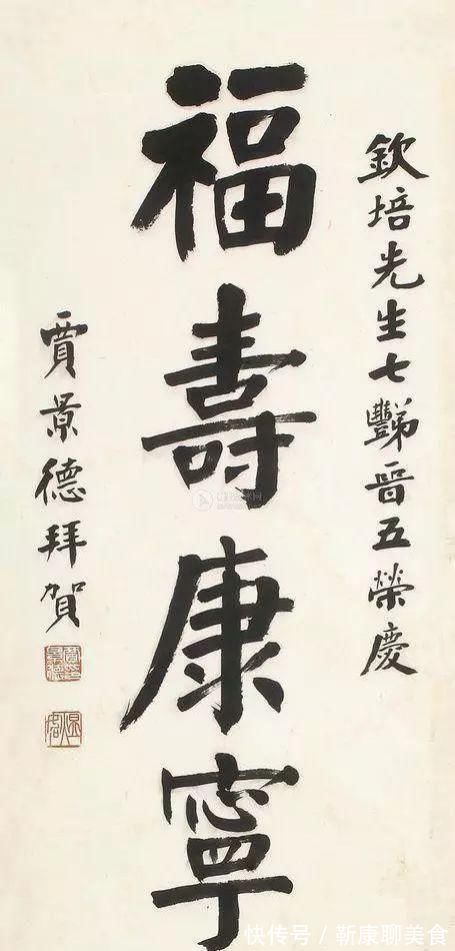 欽培先生七豑晉五榮慶
福壽康寧
賈景德拜賀
快传号 / 靳康聊美食